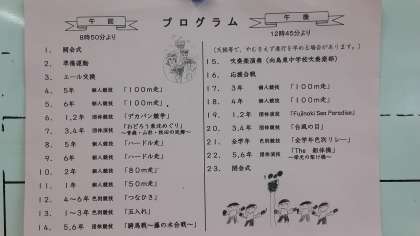 プログラム
午前
8時50分より
1. 開会式
2. 準備運動
3. エール交換
4. 5年 個人競技 「100m走」
5. 6年 個人競技 「100m走」
6. 1,2年 団体競技 「デカパン競争」
7. 3,4年 団体演技 「おどろう東北めぐり」
～青森・山形・秋田の花舞～
8. 5年 個人競技 「ハードル走」
9. 6年 個人競技 「ハードル走」
10. 2年 個人競技 「80m走」
11. 1年 個人競技 「50m走」
12. 4～6年 色別競技 「つなひき」
13. 1～3年 色別競技 「玉入れ」
14. 5,6年 団体競技 「騎馬戦～藤の木合戦～」
午後
12時45分より
(天候等で、やむをえず進行を早める場合があります。)
15. 吹奏楽演奏 (向島東中学校吹奏楽部)
16. 応援合戦
17. 3年 個人競技 「100m走」
18. 4年 個人競技 「100m走」
19. 1,2年 団体演技 「Fujinoki Sea Paradise」
20. 3,4年 団体競技 「台風の目」
21. 全学年 色別競技 「全学年色別リレー」
22. 5,6年 団体演技 「The 組体操」
～栄光の架け橋～
23. 閉会式